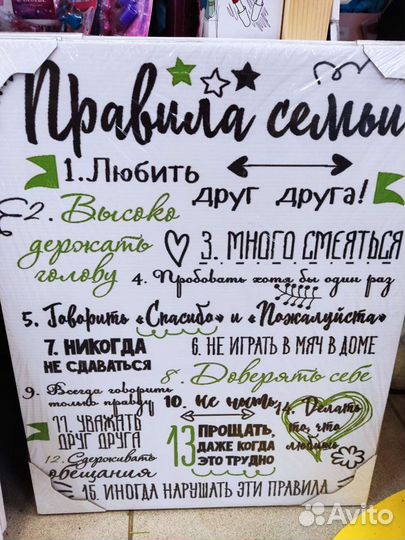 Правила семьи
1. Любить
друг друга!
2. Высоко
держать
голову
3. МНОГО СМЕЯТЬСЯ
4. Пробовать хотя бы один раз
5. Говорить «Спасибо» и «Пожалуйста»
7. НИКОГДА
НЕ СДАВАТЬСЯ
6. НЕ ИГРАТЬ В МЯЧ В ДОМЕ
8. Доверять себе
9. Всегда говорить
только правду
10. Не ныть
11. УВАЖАТЬ
ДРУГ ДРУГА
12. Сдерживать
обещания
13 ПРОЩАТЬ,
ДАЖЕ КОГДА
ЭТО ТРУДНО
14. Делать
то, что
любить
15. ИНОГДА НАРУШАТЬ ЭТИ ПРАВИЛА
Avito